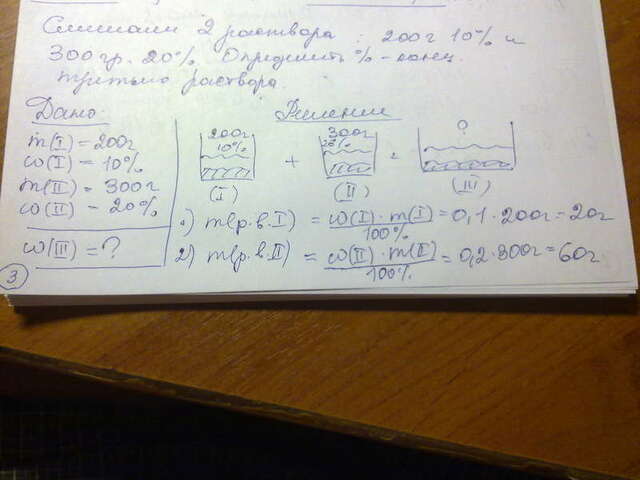 Смешали 2 раствора: 200г 10% и
300гр. 20%. Определить %-конц.
третьего раствора.
Дано:
m(I) = 200г
ω(I) = 10%
m(II) = 300г
ω(II) = 20%
ω(III) = ?
Решение
200г
10%
(I)
+
300г
20%
(II)
=
?
(III)
1) m(р.в.I) = ω(I)·m(I)/100% = 0,1·200г = 20г
2) m(р.в.II) = ω(II)·m(II)/100% = 0,2·300г = 60г
3